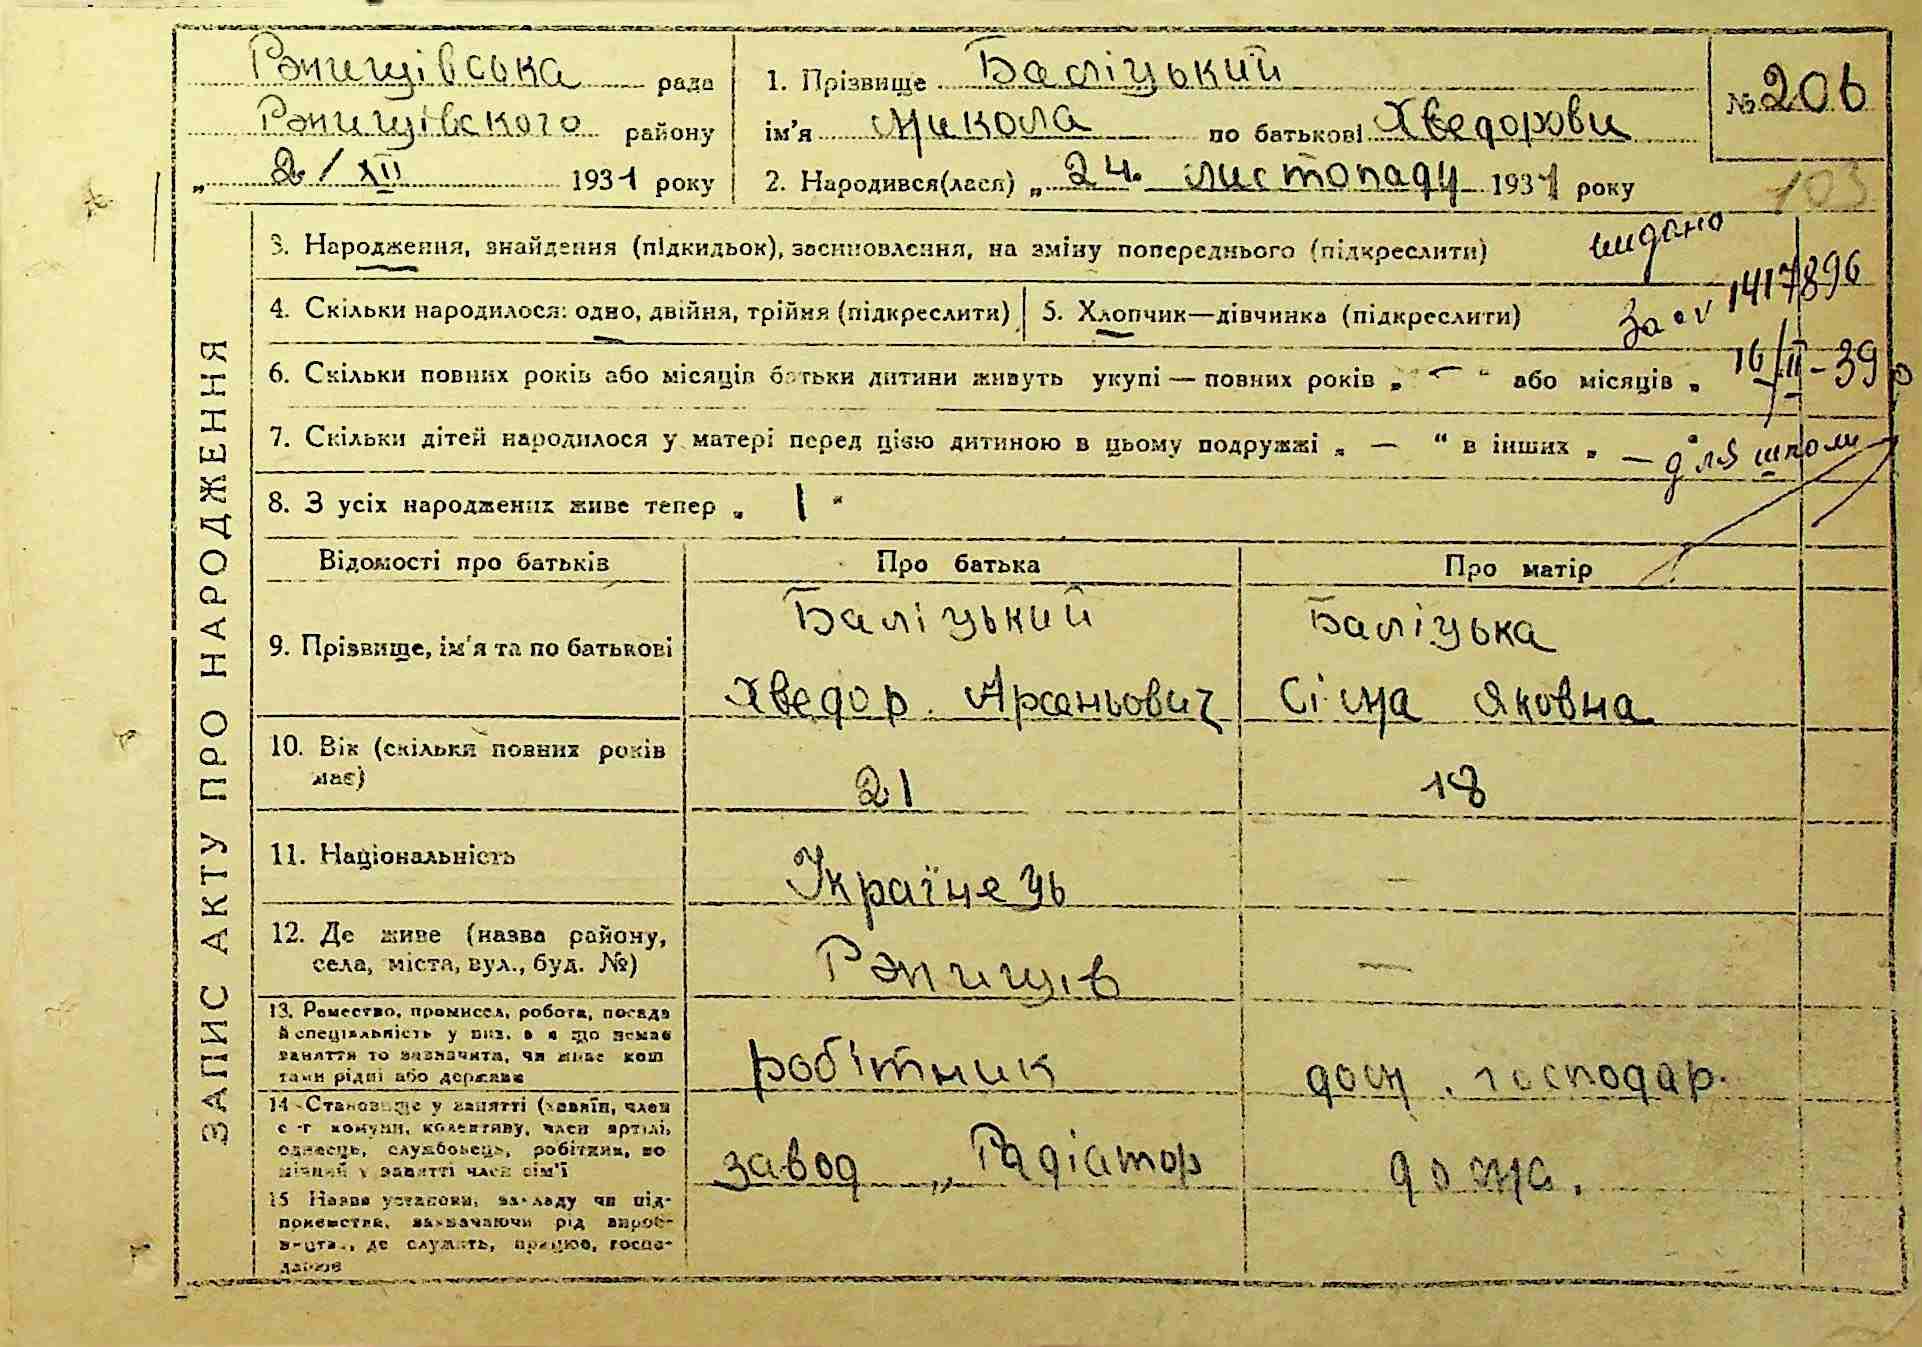 Ржищівська рада
Ржищівского району
„ 2/XII 1931 року
1. Прізвище Баліцький
ім'я Микола по батькові Хведорови
2. Народився(лася) „ 24. листопаду 1931 року
№ 206
103
ЗАПИС АКТУ ПРО НАРОДЖЕННЯ
3. Народження, знайдення (підкидьок), засиновлення, на зміну попереднього (підкреслити)
видано
4. Скільки народилося: одно, двійня, трійня (підкреслити)
5. Хлопчик—дівчинка (підкреслити)
за 1417896
6. Скільки повних років або місяців батьки дитини живуть укупі — повних років „ — “ або місяців „
16/II - 39 р
7. Скільки дітей народилося у матері перед цією дитиною в цьому подружжі „ — “ в інших „ —
для школи
8. З усіх народжених живе тепер „ 1 "
Відомості про батьків
Про батька
Про матір
9. Прізвище, ім'я та по батькові
Баліцький
Хведор Арсаньович
Баліцька
Сіма Яковна
10. Вік (скільки повних років
має)
21
18
11. Національність
Українець
—
12. Де живе (назва району,
села, міста, вул., буд. №)
Ржищів
—
13. Ремество, промисел, робота, посада
й спеціяльність у виз. а я що немає
заняття то визначити, чи живе кош
тами рідні або держави
робітник
дом. господар.
14. Становище у занятті (хазяїн, член
с-г комуни, колективу, член артілі,
одинець, службовець, робітник, по
мічний у занятті член сім'ї
завод „ Радіатор
дома.
15 Назва установи, закладу чи під-
приємства, зазначаючи рід вироб-
ництва, де служить, працює, госпо-
дарює